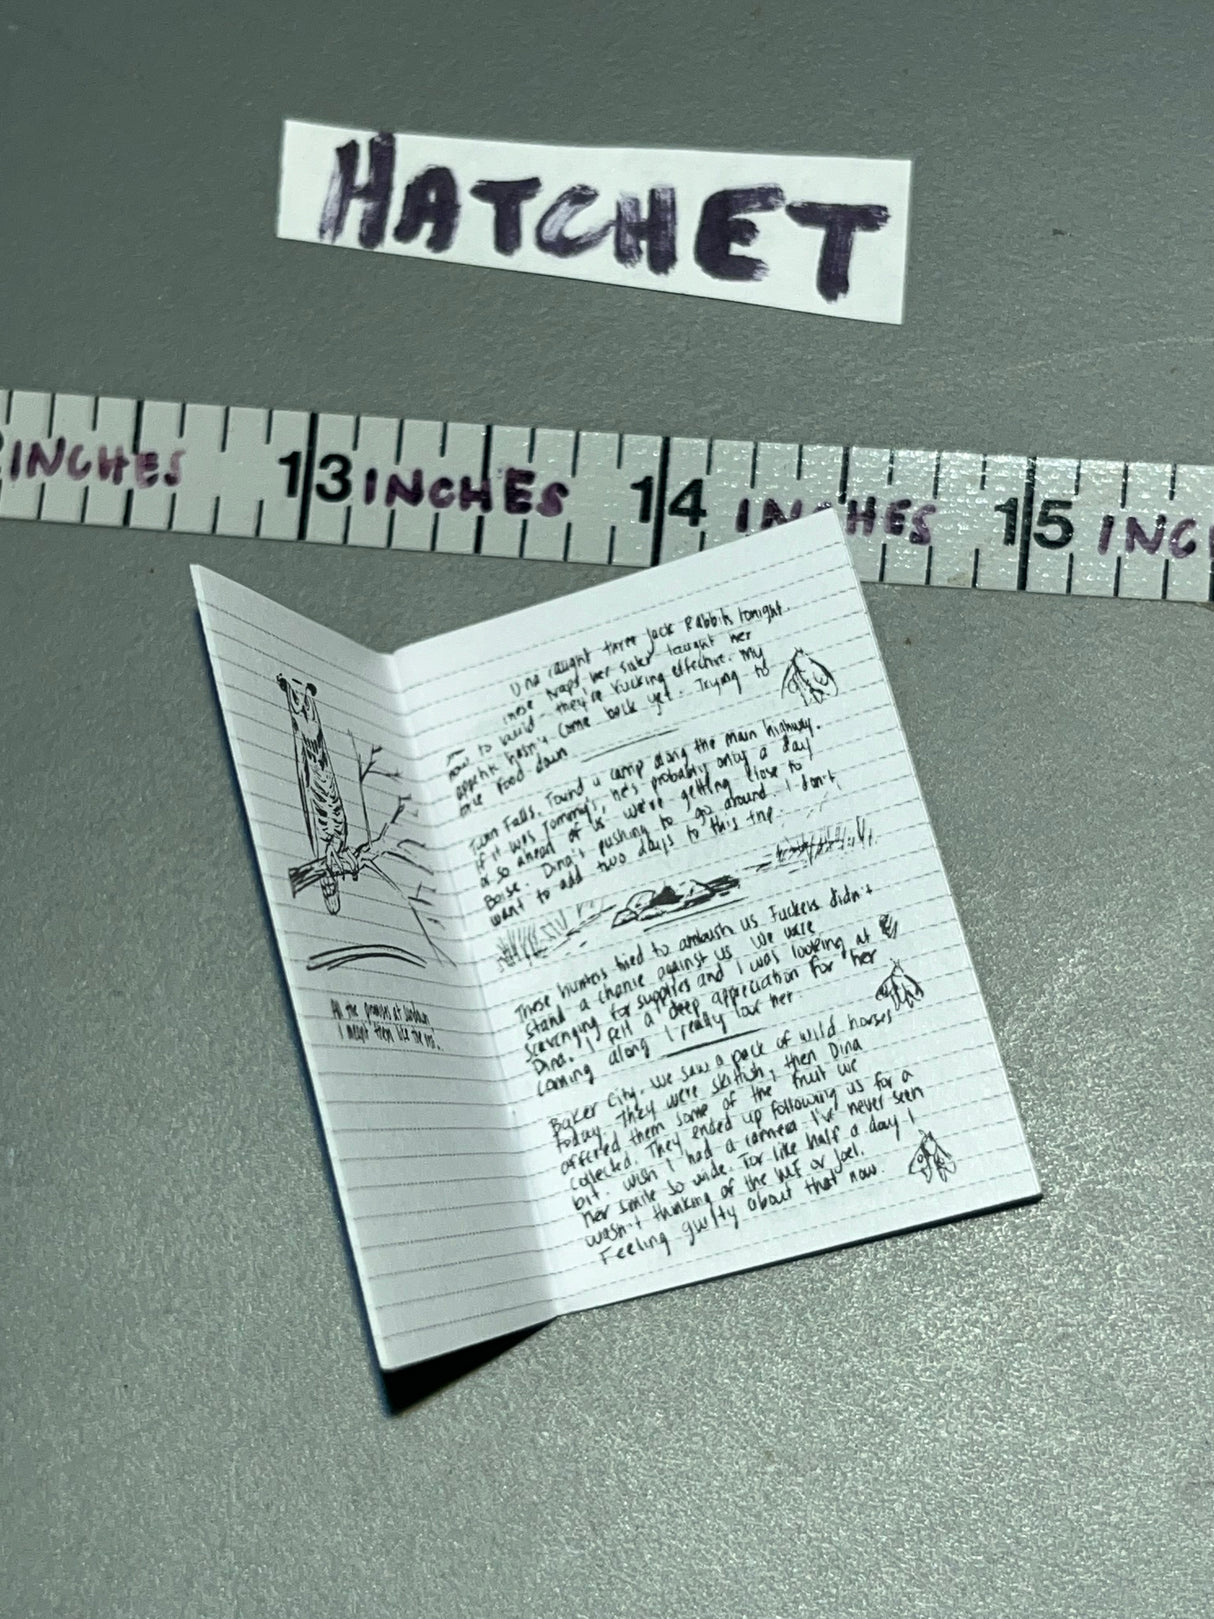 HATCHET
INCHES 13 INCHES 14 INCHES 15 INC
caught three Jack Rabbits tonight.
These traps her sister taught her
how to build - they're fucking effective. My
appetite hasn't come back yet. Trying to
food down
Twin Falls. Found a camp along the main highway.
If it was Tommy's, he's probably only a day
or so ahead of us. We're getting close to
Boise. Dina's pushing to go around. I don't
want to add two days to this trip.
These hunters tried to ambush us. Fuckers didn't
stand a chance against us. We were
scavenging for supplies and I was looking at
Dina. I felt a deep appreciation for her
coming along. I really love her.
Baker City. We saw a pack of wild horses
today. They were skittish, then Dina
offered them some of the fruit we
collected. They ended up following us for a
bit. Wish I had a camera. I've never seen
her smile so wide. For like half a day I
wasn't thinking of the WLF or Joel.
Feeling guilty about that now.
All the promises at sundown
I meant them like the rest.